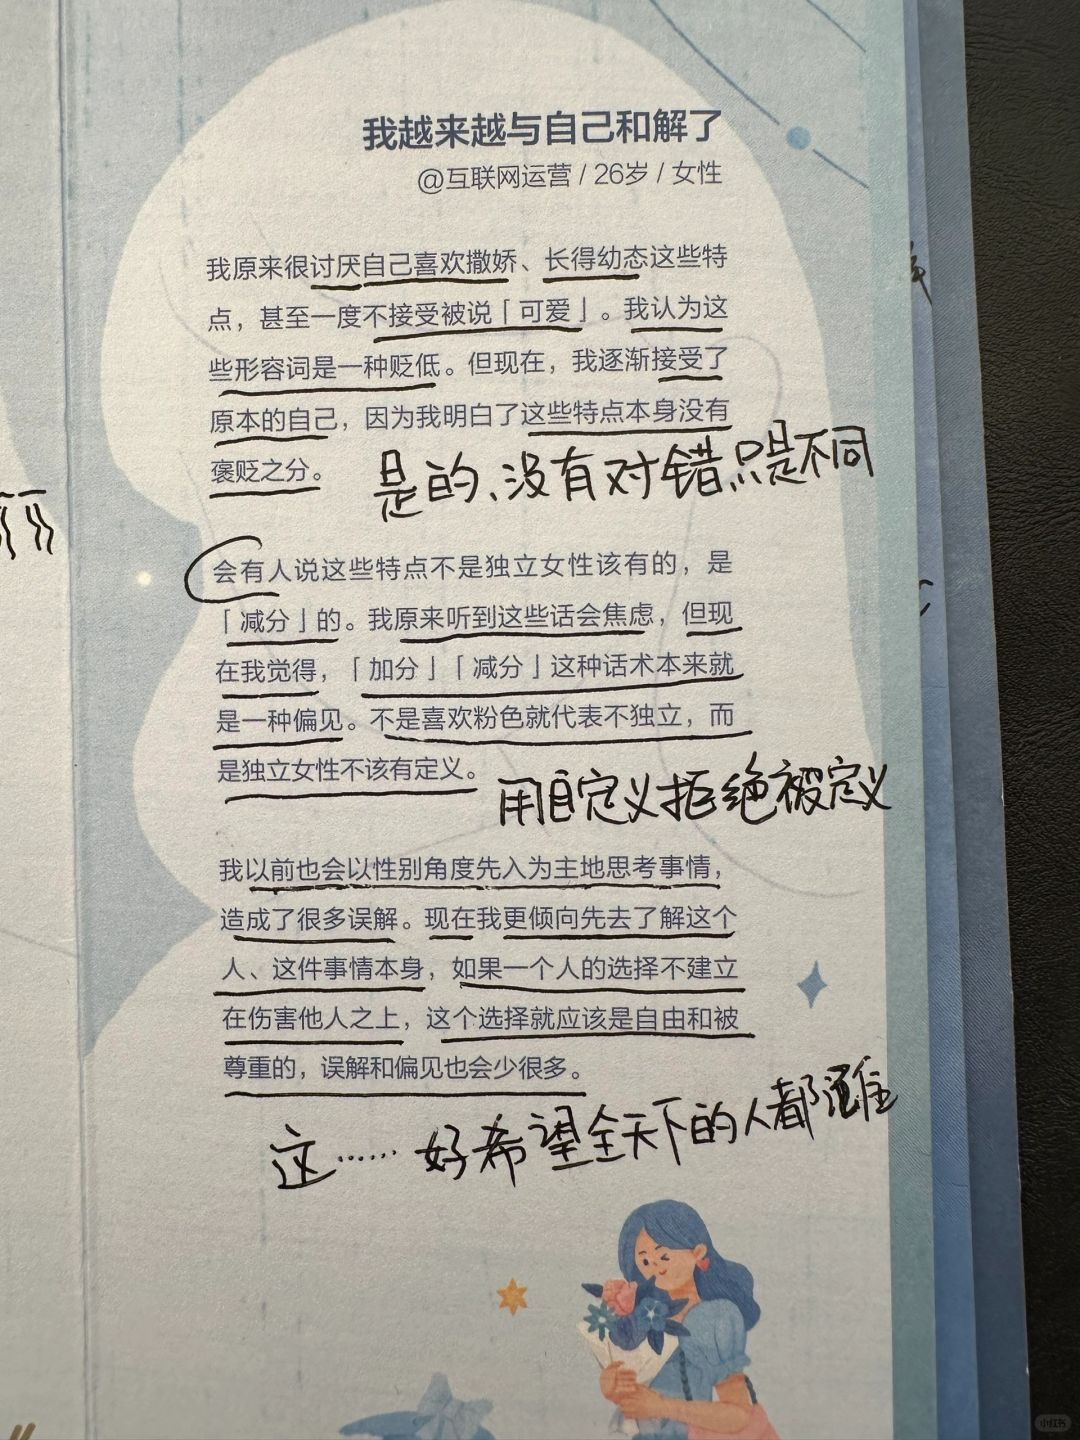 我越来越与自己和解了
@互联网运营 / 26岁 / 女性
我原来很讨厌自己喜欢撒娇、长得幼态这些特
点，甚至一度不接受被说「可爱」。我认为这
些形容词是一种贬低。但现在，我逐渐接受了
原本的自己，因为我明白了这些特点本身没有
褒贬之分。
是的、没有对错只是不同
会有人说这些特点不是独立女性该有的，是
「减分」的。我原来听到这些话会焦虑，但现
在我觉得，「加分」「减分」这种话术本来就
是一种偏见。不是喜欢粉色就代表不独立，而
是独立女性不该有定义。
用自定义拒绝被定义
我以前也会以性别角度先入为主地思考事情，
造成了很多误解。现在我更倾向先去了解这个
人、这件事情本身，如果一个人的选择不建立
在伤害他人之上，这个选择就应该是自由和被
尊重的，误解和偏见也会少很多。
这……好希望全天下的人都
小红书